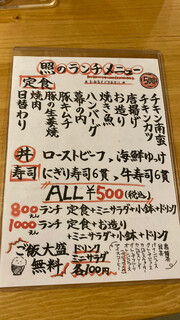 照のランチメニュー
500
定食
チキン南蛮
チキンカツ
唐揚げ
お造り
焼き魚
ハンバーグ
幕の内
豚キムチ
豚の生姜焼
焼肉
日替わり
丼 ローストビーフ、海鮮ゆっけ
寿司 にぎり寿司6貫、牛寿司6貫
ALL ¥500(税込)
800えん ランチ 定食+ミニサラダ+小鉢+ドリンク
1000えん ランチ 定食+お造り
+ミニサラダ+小鉢+ドリンク
ご飯大盛 無料!
ドリンク
ミニサラダ
各100円